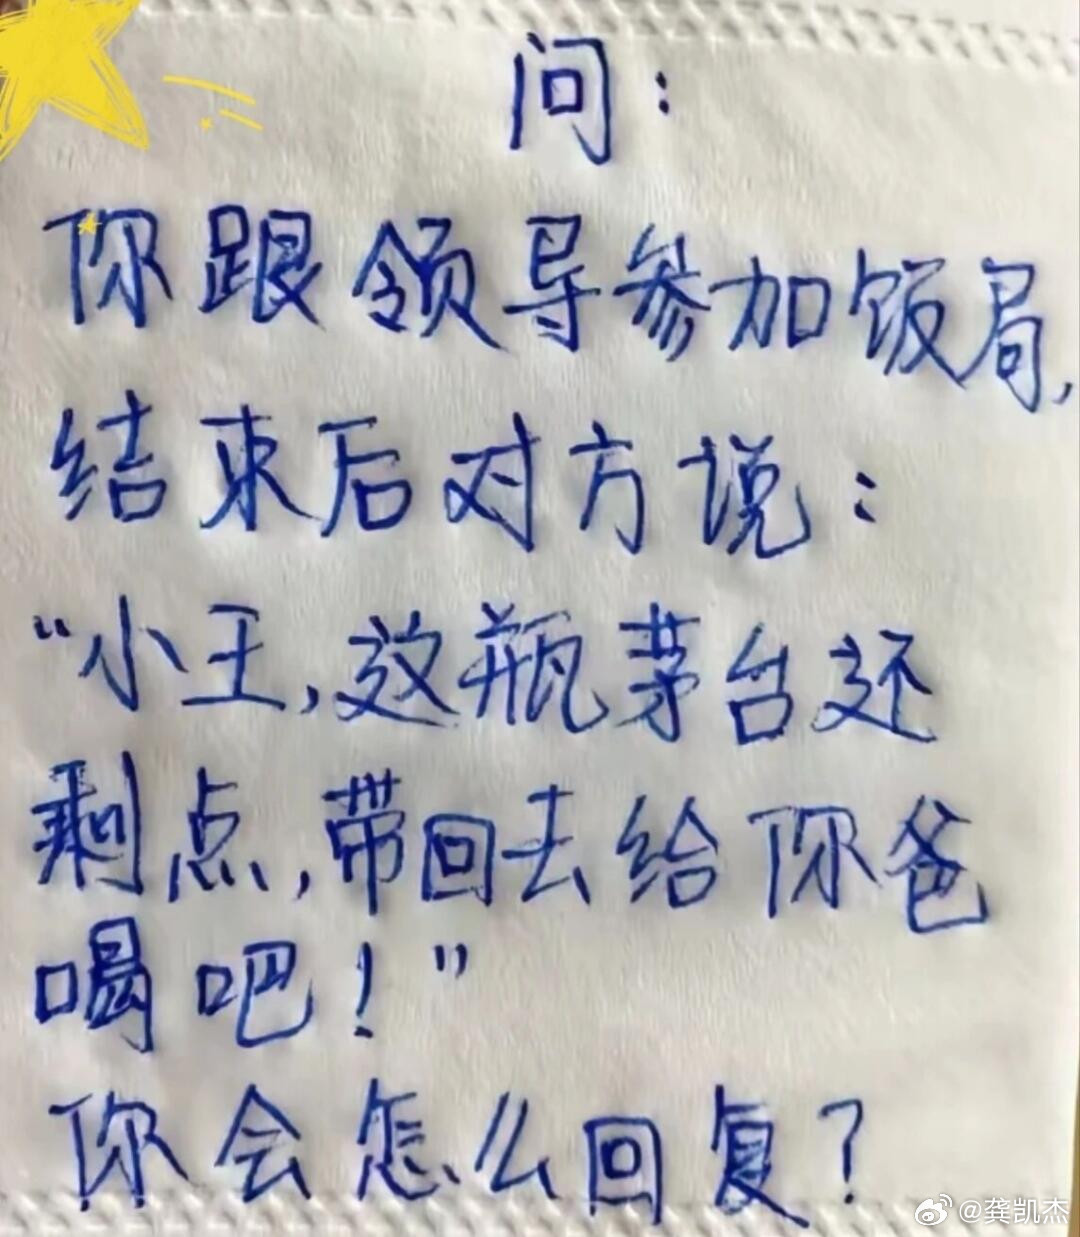 问:
你跟领导参加饭局,
结束后对方说:
“小王,这瓶茅台还
剩点,带回去给你爸
喝吧!”
你会怎么回复?
@龚凯杰